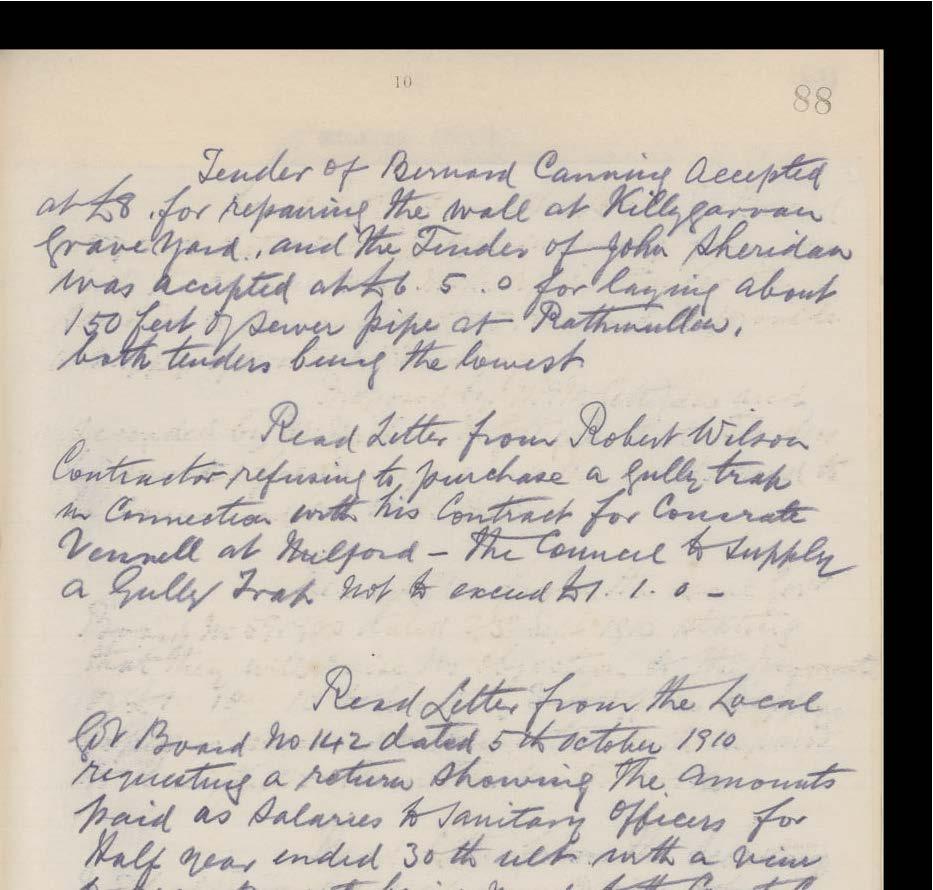 10
88
Tender of Bernard Canning Accepted
at £8. for repairing the wall at Killygarvan
Grave Yard. and the Tender of John Sheridan
was accepted at £6. 5. 0 for laying about
150 feet of sewer pipe at Rathmullen.
both tenders being the lowest
Read Letter from Robert Wilson
Contractor refusing to purchase a Gully trap
in Connection with his Contract for Concrate
Vennell at Milford - the Council to supply
a Gully Trap not to exceed £1. 1. 0 -
Read Letter from the Local
Gov Board No 142 dated 5th October 1910
requesting a return showing the amounts
paid as Salaries to Sanitary Officers for
Half year ended 30th ult with a view